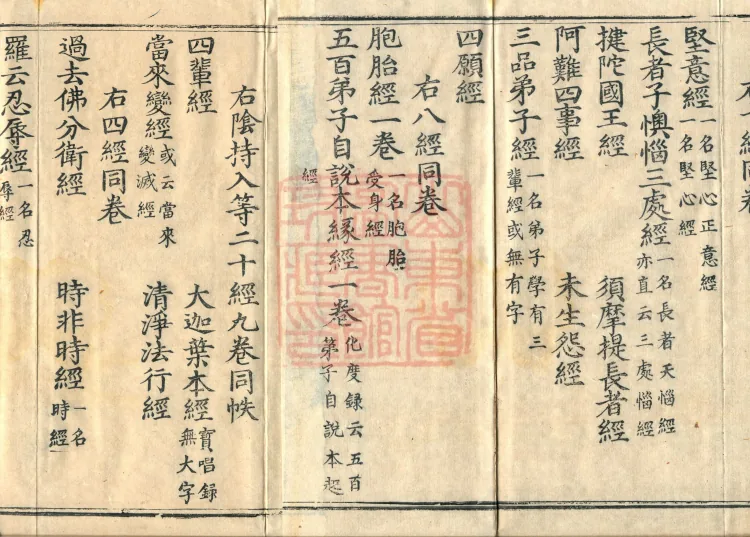 經同卷
堅意經 一名堅心正意經 一名堅心經
長者子懊惱三處經 一名長者天惱經 亦直云三處惱經
揵陀國王經 須摩提長者經
阿難四事經 未生怨經
三品弟子經 一名弟子學有三輩經或無有字
四願經
右八經同卷
胞胎經一卷 一名胞胎受身經
五百弟子自說本緣經一卷 化度錄云五百弟子自說本起經
右陰持入等二十經九卷同帙
四輩經 大迦葉本經 寶唱錄無大字
當來變經 或云當來變滅經 清淨法行經
右四經同卷
過去佛分衛經 時非時經 一名時經
羅云忍辱經 一名忍辱經
山東省
圖書館